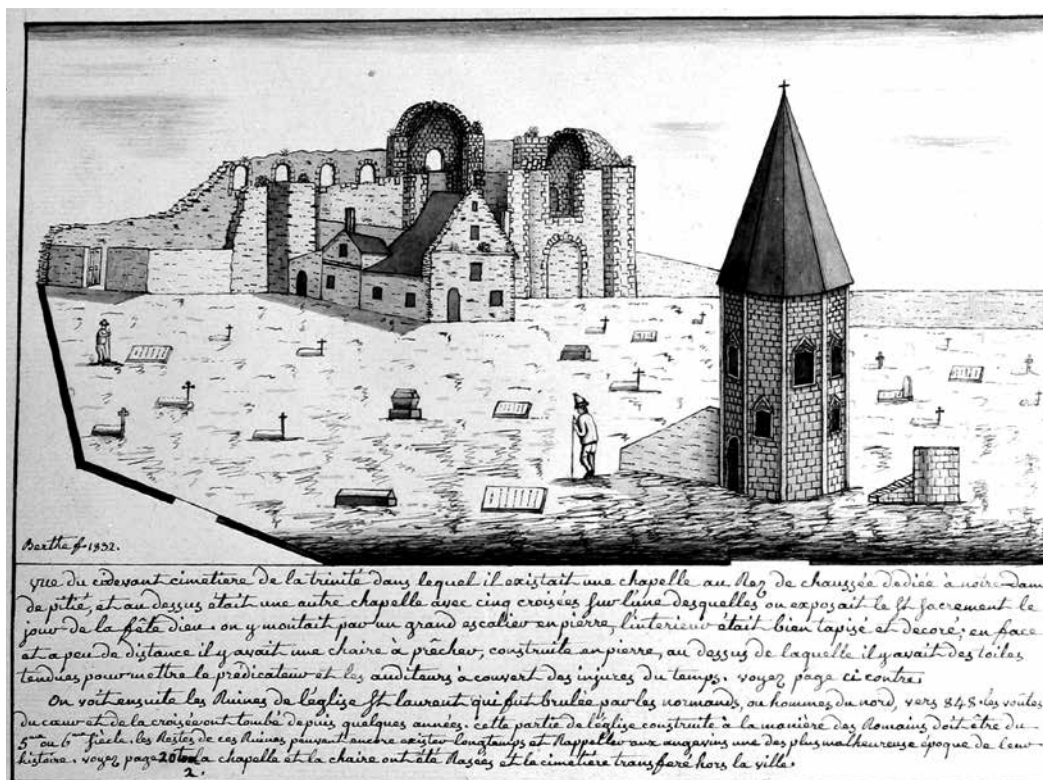 Berthe f 1832.
vue du cidevant cimetiere de la trinité dans lequel il existait une chapelle au Rez de chaussée dediée à notre-dame
de pitié, et au dessus était une autre chapelle avec cinq croisées sur l'une desquelles on exposait le St Sacrement le
jour de la fête dieu. on y montait par un grand escalier en pierre, l'interieur était bien tapisé et decoré; en face
et a peu de distance il y avait une chaire à prêcher, construite en pierre, au dessus de laquelle il y avait des toiles
tendues pour mettre le prédicateur et les auditeurs à couvert des injures du temps. voyez page ci contre.
On voit ensuite les Ruines de l'église St laurent qui fut brulée par les normands, ou hommes du nord, vers 848. les voûtes
du cœur et de la croisée ont tombé depuis quelques années. cette partie de l'église construite à la manière des Romains doit être du
5me ou 6me siècle. les Restes de ces Ruines peuvent encore exister longtemps et Rappeller aux angevins une des plus malheureuse époque de leur
histoire. voyez page la chapelle et la chaire ont été Rasées et le cimetiere transferé hors la ville.
2.